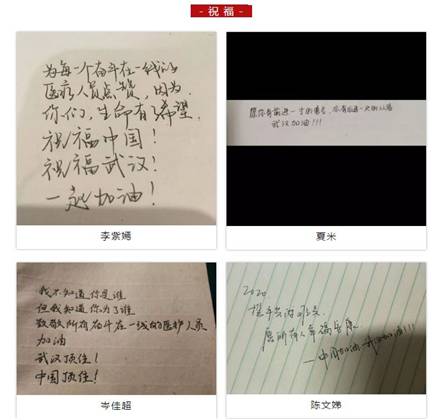 - 祝 福 -
为每一个奋斗在一线的
医疗人员点赞,因为
你们,生命有了希望.
祝福中国!
祝福武汉!
一起加油!
李紫嫣
愿你有前进一寸的勇气,亦有后退一尺的从容
武汉加油!!!
夏米
我不知道你是谁
但我知道你为了谁
致敬所有奋斗在一线的医护人员
加油
武汉顶住!
中国顶住!
岑佳超
2020
愿所有人幸福安康
—中国加油 武汉加油!!!
陈文娣